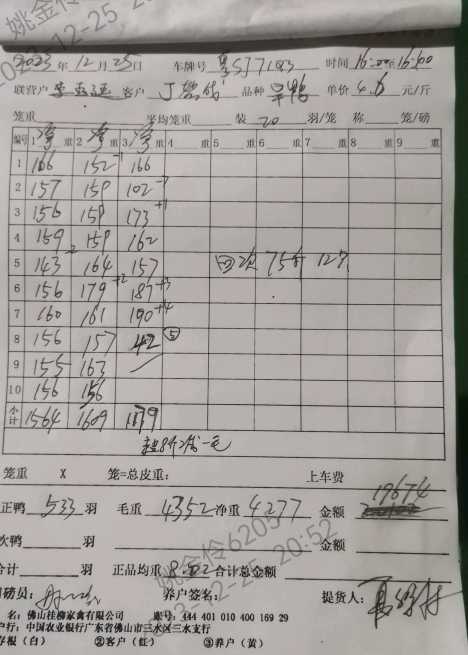 2023年12月25日 车牌号 时间16:00至16:00
联营户 客户 品种 旱鸭 单价 4.6 元/斤
笼重 平均笼重 装 20 羽/笼 称 笼/磅
编号 1 净重 2 净重 3 净重 4 重 5 重 6 重 7 重 8 重 9 重
1 166 152 166
2 157 159 102
3 156 159 173
4 159 159 162
5 143 164 157 回次 75斤 12只
6 156 179 +2 187 +3
7 160 161 190 +4
8 156 157 42 ⑤
9 155 163
10 156 156
小计 1564 1609 1179
笼重 X 笼=总皮重: 上车费
正鸭 533 羽 毛重 4352 净重 4277 金额 19674
次鸭 羽 金额
合计 羽 正品均重 8.02 合计总金额
司磅员: 养户签名: 提货人:
名: 佛山桂柳家禽有限公司 账号: 444 401 010 400 169 29
户行: 中国农业银行广东省佛山市三水区三水支行
存根(白) ②客户(红) ③养户(黄)
姚金伶6205
2023-12-25 20:52